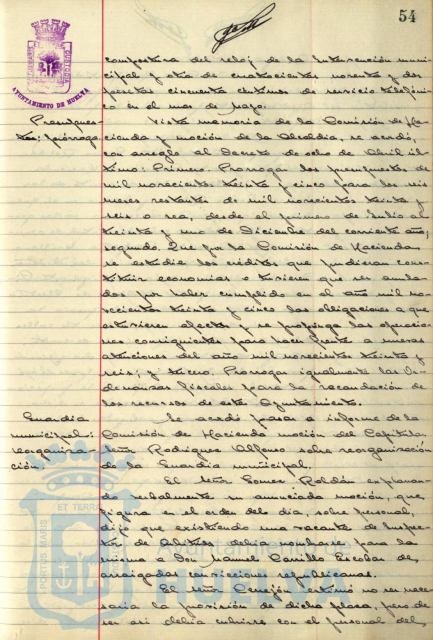 54
AYUNTAMIENTO DE HUELVA
compostura del reloj de la Intervención muni-
cipal y otra de cuatrocientas noventa y dos
pesetas cincuenta céntimos de servicio telefóni-
co en el mes de Mayo.
Presupues-
tos: prórroga.
Vista memoria de la Comisión de Ha-
cienda y moción de la Alcaldía, se acordó,
con arreglo al Decreto de ocho de Abril úl-
timo: Primero. Prorrogar los presupuestos de
mil novecientos treinta y cinco para los seis
meses restantes de mil novecientos treinta y
seis o sea, desde el primero de Julio al
treinta y uno de Diciembre del corriente año;
segundo. Que por la Comisión de Hacienda
se estudie los créditos que pudieran cons-
tituir economías o tuvieren que ser anula-
dos por haber cumplido en el año mil no-
vecientos treinta y cinco las obligaciones a que
estuvieren afectos y se proponga las operacio-
nes consiguientes para hacer frente a nuevas
atenciones del año mil novecientos treinta y
seis; y tercero. Prorrogar igualmente las Or-
denanzas fiscales para la recaudación de
los recursos de este Ayuntamiento.
Guardia
municipal:
reorganiza-
ción.
Se acordó pasar a informe de la
Comisión de Hacienda moción del Capitular
señor Rodríguez Alfonso sobre reorganización
de la Guardia municipal.
El señor Gómez Roldán explanan-
do verbalmente su anunciada moción, que
figura en el orden del día, sobre personal,
dijo que existiendo una vacante de Inspec-
tor de Arbitrios debía nombrarse para la
misma a Don Manuel Carrillo Escobar de
arraigadas convicciones republicanas.
El señor Cerejón estimó no ser nece-
saria la provisión de dicha plaza, pero de
ser así debía cubrirse con el personal del
PORTUS MARIS
ET TERRAE